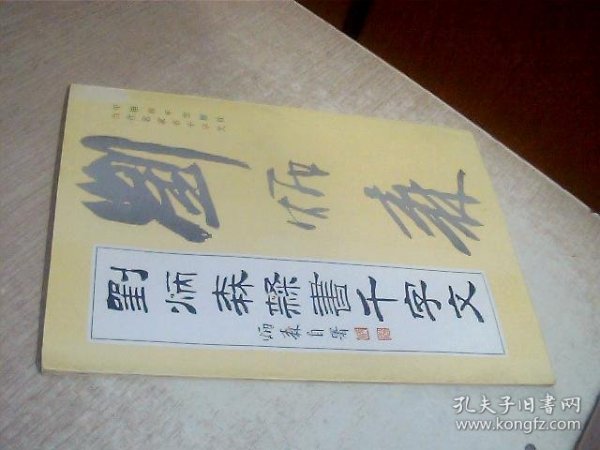 劉炳森
劉炳森隸書千字文
炳森自署
孔夫子旧书网
www.kongfz.com